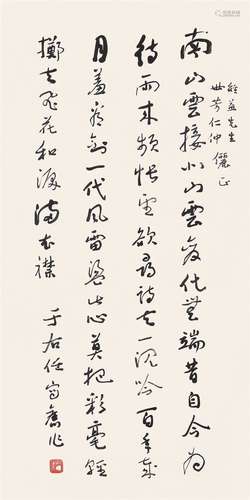 先生
世芳仁仲 儷正
南山雲接北山雲變化無端昔自今為
待雨來頻悵望欲尋詩去一沉吟百年歲
月羞看劍一代風雷盪此心莫把彩毫輕
擲去飛花和淚滿衣襟 于右任寫舊作